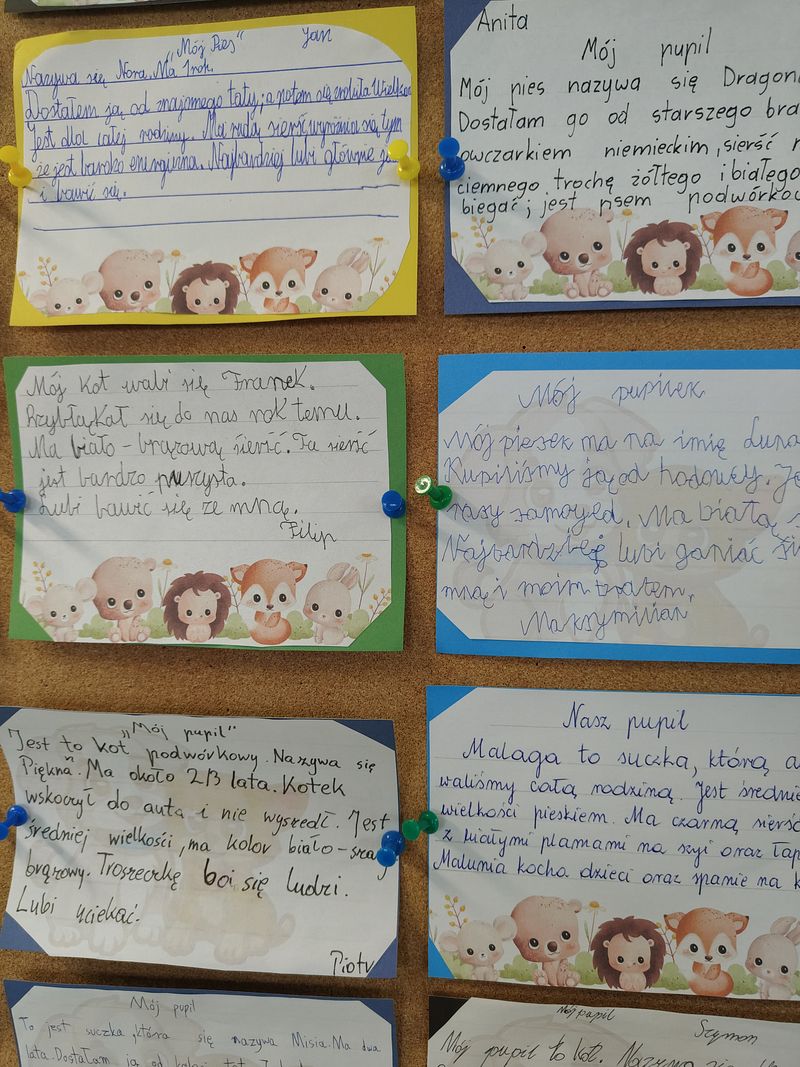 "Mój Pies" Jan
Nazywa się Nora. Ma 1 rok.
Dostałem ją od znajomego taty, a potem się
Jest dla całej rodziny. Ma rudą sierść wyróżnia się tym
że jest bardzo energiczna. Najbardziej lubi głównie
i bawić się.
Anita
Mój pupil
Mój pies nazywa się Dragon
Dostałam go od starszego bra
owczarkiem niemieckim, sierść
ciemnego trochę żółtego i białego
biegać; jest psem podwórko
Mój kot wabi się Franek.
Przybłąkał się do nas rok temu.
Ma biało-brązową sierść. Ta sierść
jest bardzo puszysta.
Lubi bawić się ze mną.
Filip
Mój pupilek
Mój piesek ma na imię Luna
Kupiliśmy ją od hodowcy. Je
rasy samoyed. Ma białą s
Najbardziej lubi ganiać
mną i moim bratem.
Maksymilian
„Mój pupil"
Jest to kot podwórkowy. Nazywa się
"Piękna". Ma około 2/3 lata. Kotek
wskoczył do auta i nie wyszedł. Jest
średniej wielkości, ma kolor biało-szary
brązowy. Troszeczkę boi się ludzi.
Lubi uciekać.
Piotr
Nasz pupil
Malaga to suczka, którą a
waliśmy całą rodziną. Jest średnie
wielkości pieskiem. Ma czarną sierść
z białymi plamami na szyi oraz łap
Malunia kocha dzieci oraz spanie na k
Mój pupil
To jest suczka, która się nazywa Misia. Ma dwa
lata. Dostałam ją od
Mój pupil
Szymon
Mój pupil to kot. Nazywa się